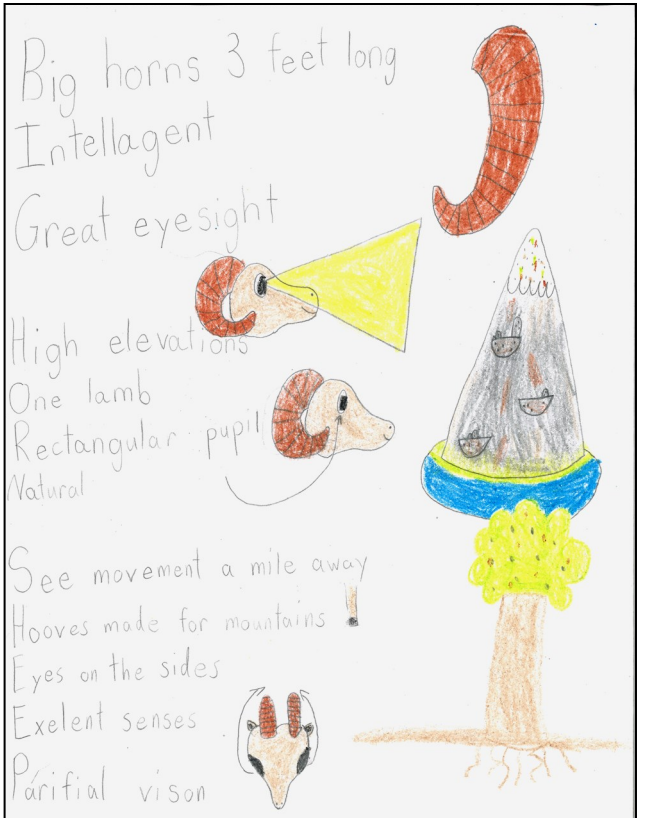 Big horns 3 feet long
Intellagent
Great eyesight
High elevations
One lamb
Rectangular pupil
Natural
See movement a mile away
Hooves made for mountains
Eyes on the sides
Exelent senses
Parifial vison